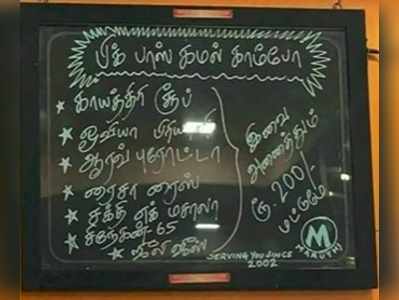 பிக் பாஸ் கமல் காம்போ
காயத்திரி சூப்
ஓவியா பிரியாணி
ஆரவ் புரோட்டா
ரைசா ரைஸ்
சக்தி எக் மசாலா
சிநேகன் - 65
ஜூலி
இவை
அனைத்தும்
ரூ. 200/-
மட்டுமே
M
MARUTHI
SERVING YOU SINCE
2002